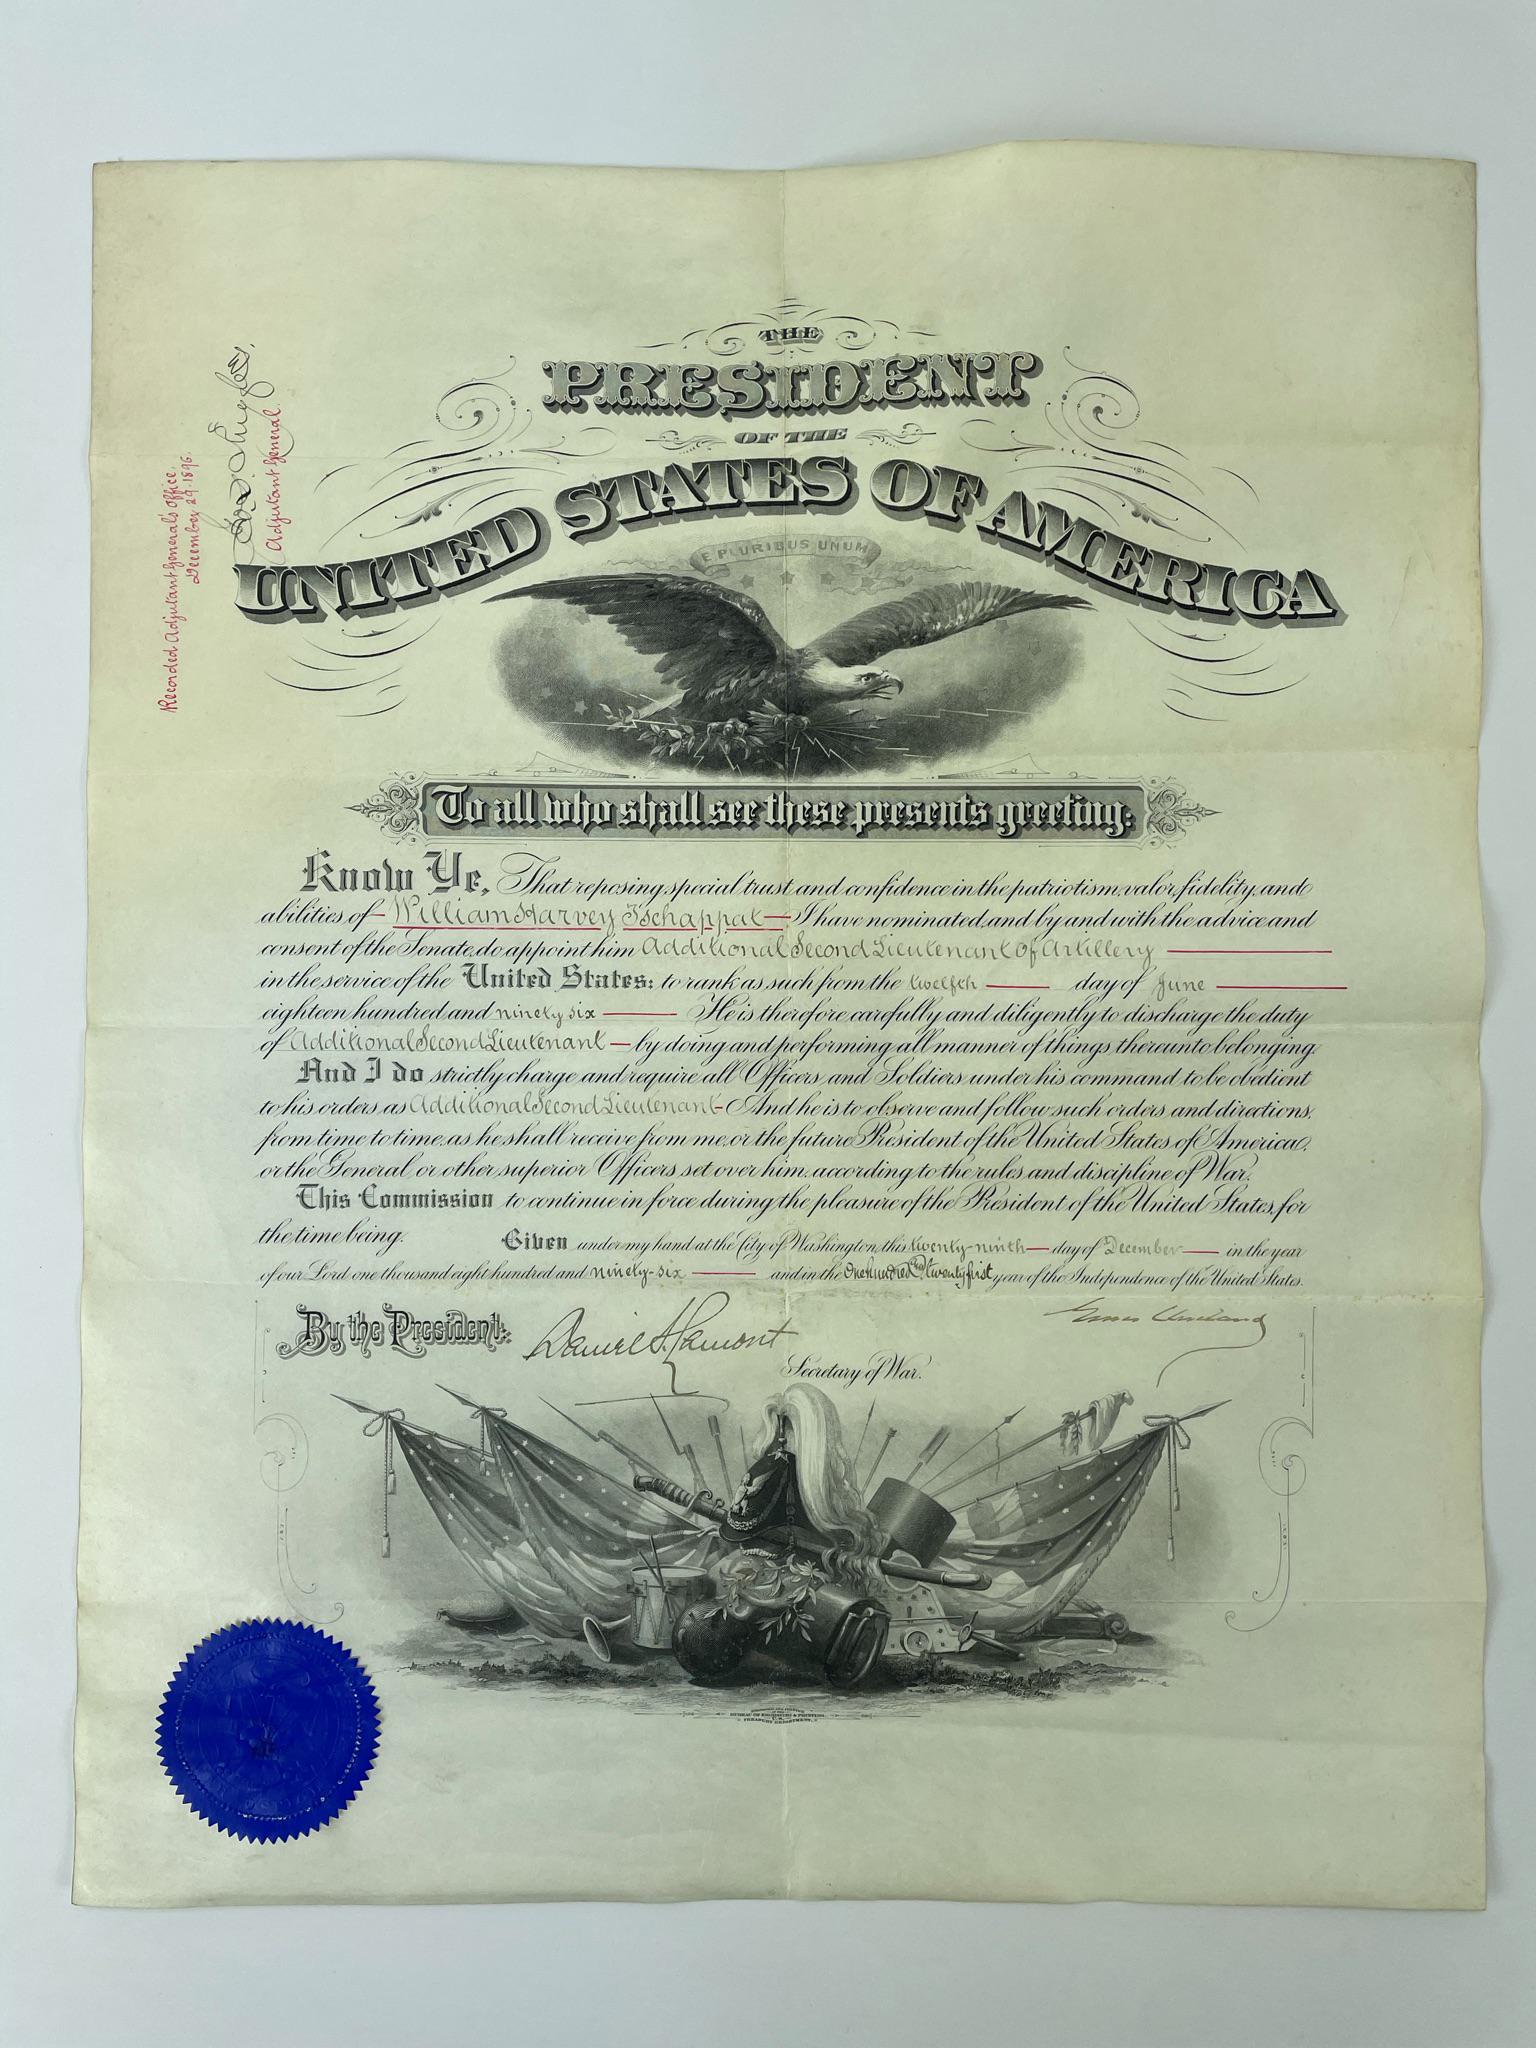 THE
PRESIDENT
OF THE
UNITED STATES OF AMERICA
E PLURIBUS UNUM
Recorded Adjutant General's Office,
December 29. 1896.
Adjutant General.
To all who shall see these presents greeting:
Know Ye, That reposing special trust and confidence in the patriotism, valor, fidelity, and
abilities of William Harvey Tschappat I have nominated, and by and with the advice and
consent of the Senate, do appoint him Additional Second Lieutenant of Artillery
in the service of the United States: to rank as such from the twelfth day of June
eighteen hundred and ninety six He is therefore carefully and diligently to discharge the duty
of Additional Second Lieutenant by doing and performing all manner of things thereunto belonging.
And I do strictly charge and require all Officers and Soldiers under his command to be obedient
to his orders as Additional Second Lieutenant And he is to observe and follow such orders and directions,
from time to time, as he shall receive from me, or the future President of the United States of America,
or the General or other superior Officers set over him, according to the rules and discipline of War.
This Commission to continue in force during the pleasure of the President of the United States, for
the time being. Given under my hand at the City of Washington, this twenty-ninth day of December in the year
of our Lord one thousand eight hundred and ninety-six and in the one hundred and twenty first year of the Independence of the United States.
By the President: Daniel S. Lamont Grover Cleveland
Secretary of War.
BUREAU OF ENGRAVING & PRINTING
TREASURY DEPARTMENT.